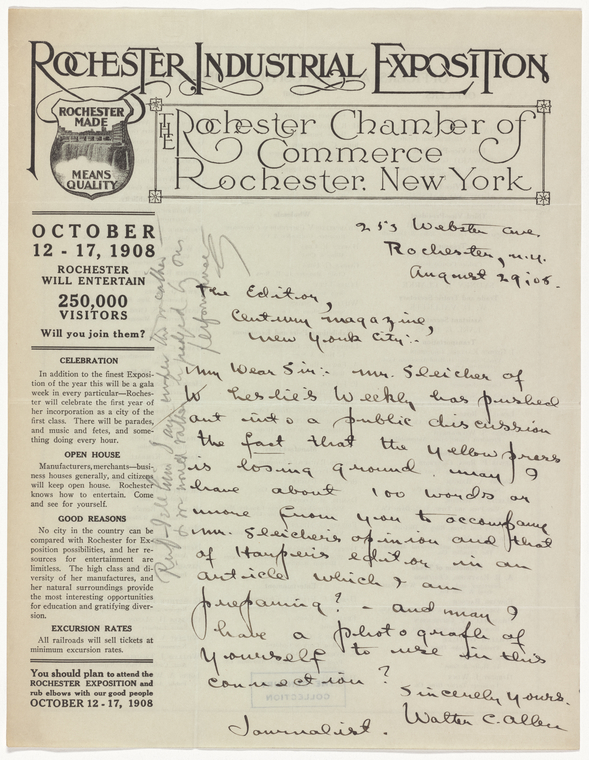 ROCHESTER INDUSTRIAL EXPOSITION
ROCHESTER
MADE
MEANS
QUALITY
THE Rochester Chamber of
Commerce
Rochester. New York
OCTOBER
12 - 17, 1908
ROCHESTER
WILL ENTERTAIN
250,000
VISITORS
Will you join them?
CELEBRATION
In addition to the finest Exposi-
tion of the year this will be a gala
week in every particular—Roches-
ter will celebrate the first year of
her incorporation as a city of the
first class. There will be parades,
and music and fetes, and some-
thing doing every hour.
OPEN HOUSE
Manufacturers, merchants—busi-
ness houses generally, and citizens
will keep open house. Rochester
knows how to entertain. Come
and see for yourself.
GOOD REASONS
No city in the country can be
compared with Rochester for Ex-
position possibilities, and her re-
sources for entertainment are
limitless. The high class and di-
versity of her manufactures, and
her natural surroundings provide
the most interesting opportunities
for education and gratifying diver-
sion.
EXCURSION RATES
All railroads will sell tickets at
minimum excursion rates.
You should plan to attend the
ROCHESTER EXPOSITION and
rub elbows with our good people
OCTOBER 12 - 17, 1908
253 Webster ave.
Rochester, N.Y.
August 29, 08.
The Editor,
Century Magazine,
New York City:-
My Dear Sir:- Mr. Sleicher of
Leslie's Weekly has pushed
out into a public discussion
the fact that the Yellow press
is losing ground. May I
have about 100 words or
more from you to accompany
Mr. Sleicher's opinion and that
of Harper's editor in an
article which I am
preparing? - and may I
have a photograph of
yourself to use in this
connection?
Sincerely Yours.
Walter C. Allen
Journalist.
tell him I am under the weather
judged by our
performances
COLLECTION